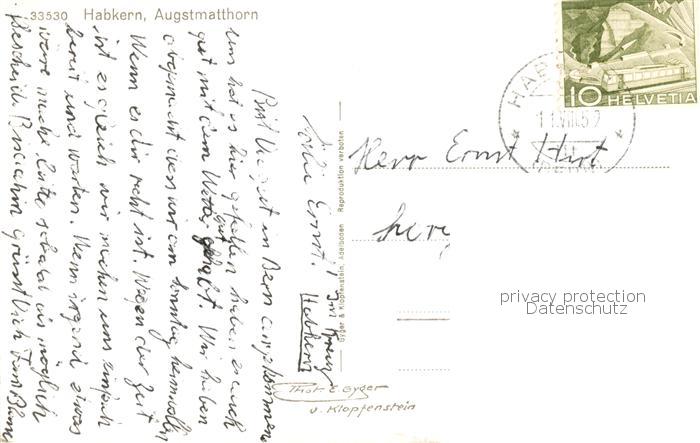 33530 Habkern, Augstmatthorn
Lieber Ernst!
Bist Du gut in Bern angekommen
Uns hat es hier gefallen haben es auch
gut mit dem Wetter gut gehabt. Wir haben
abgemacht dass wir am Sonntag heim wollen
Wenn es dir recht ist. Wegen der Zeit
ist es gleich wir machen uns einfach
bereit und warten. Wenn irgend etwas
wäre mache bitte sobald als möglich
Bescheid. Bis dahin grüsst Dich Fam. Blum
Habkern
Gyger & Klopfenstein, Adelboden Reproduktion verboten
Phot. E. Gyger
u. Klopfenstein
HELVETIA
10
HAB
11.VIII.52
Herr Ernst Hirt
privacy protection
Datenschutz